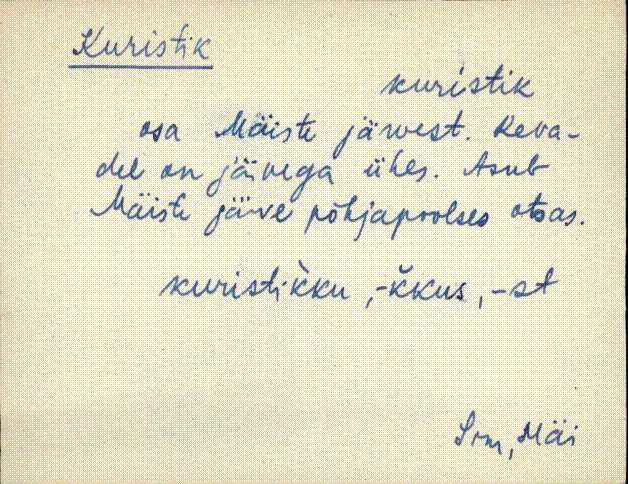 Kuristik
kuristik
osa Mäiste järvest. Keva-
del on järvega ühes. Asub
Mäiste järve põhjapoolses otsas.
kuristik̀ku, -k̆kus, -st
Mäi